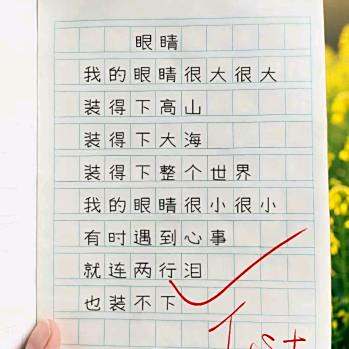 眼睛
我的眼睛很大很大
装得下高山
装得下大海
装得下整个世界
我的眼睛很小很小
有时遇到心事
就连两行泪
也装不下